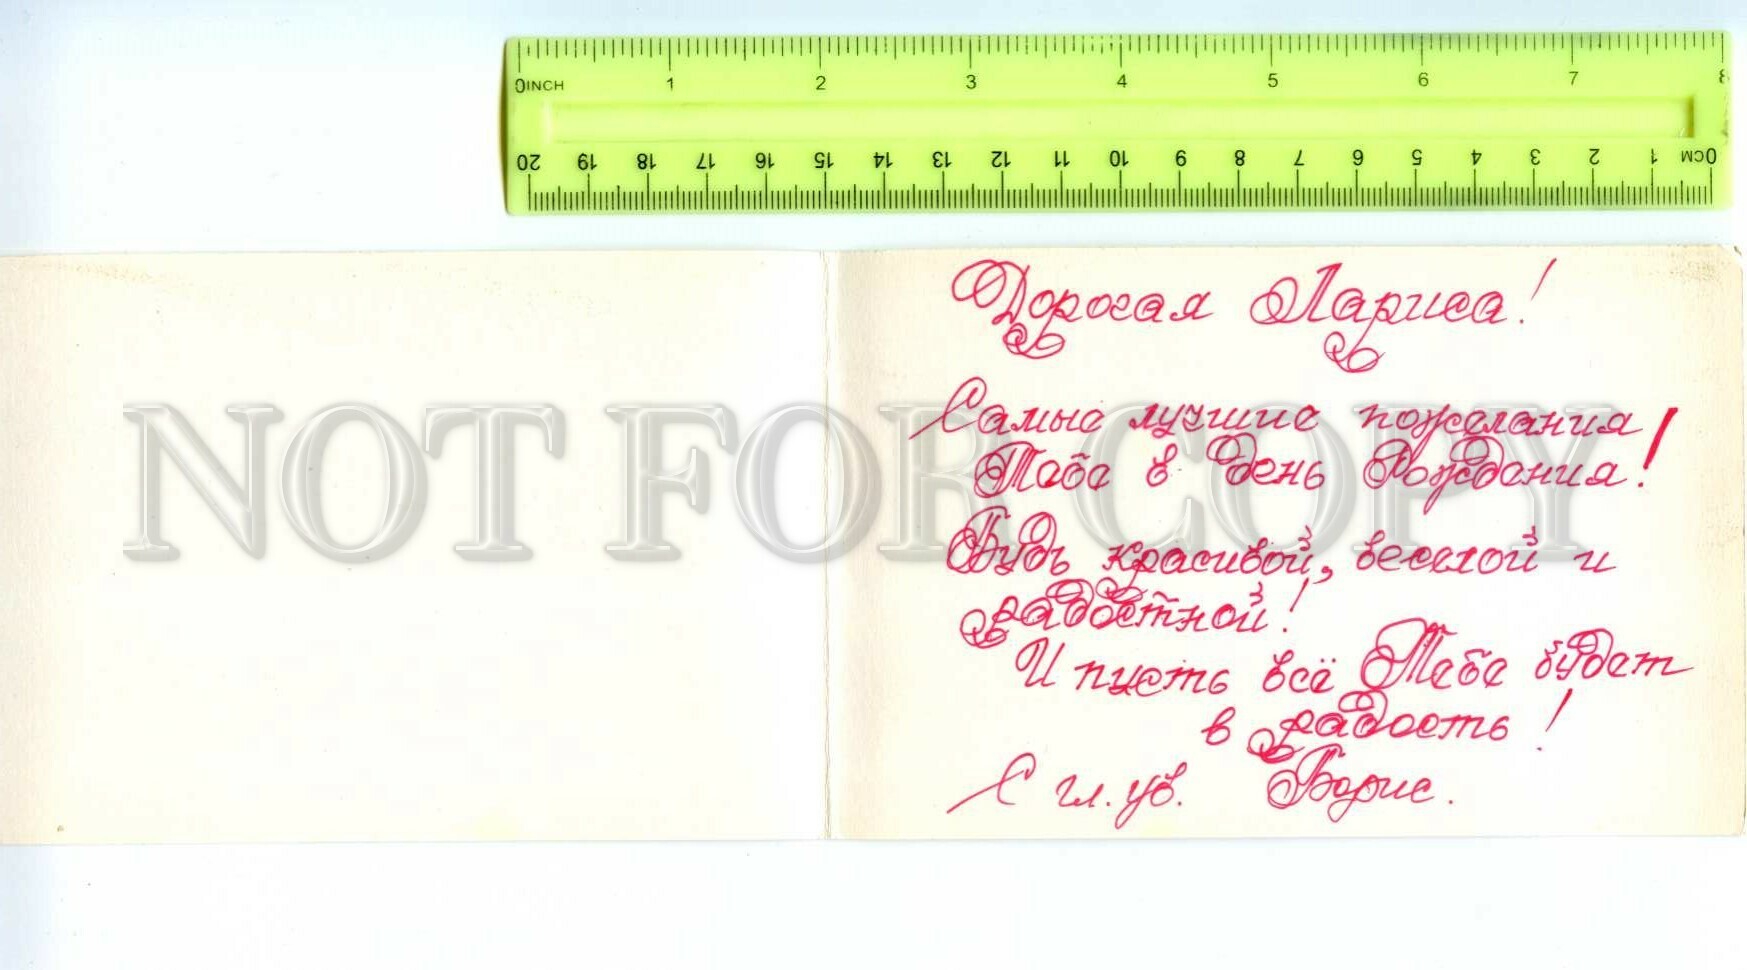 0INCH 1 2 3 4 5 6 7 8
20 19 18 17 16 15 14 13 12 11 10 9 8 7 6 5 4 3 2 1 0CM
Дорогая Лариса!
Самые лучшие пожелания
Тебе в день Рождения!
Будь красивой, веселой и
радостной!
И пусть всё Тебе будет
в радость!
С гл. ув. Борис.
NOT FOR COPY